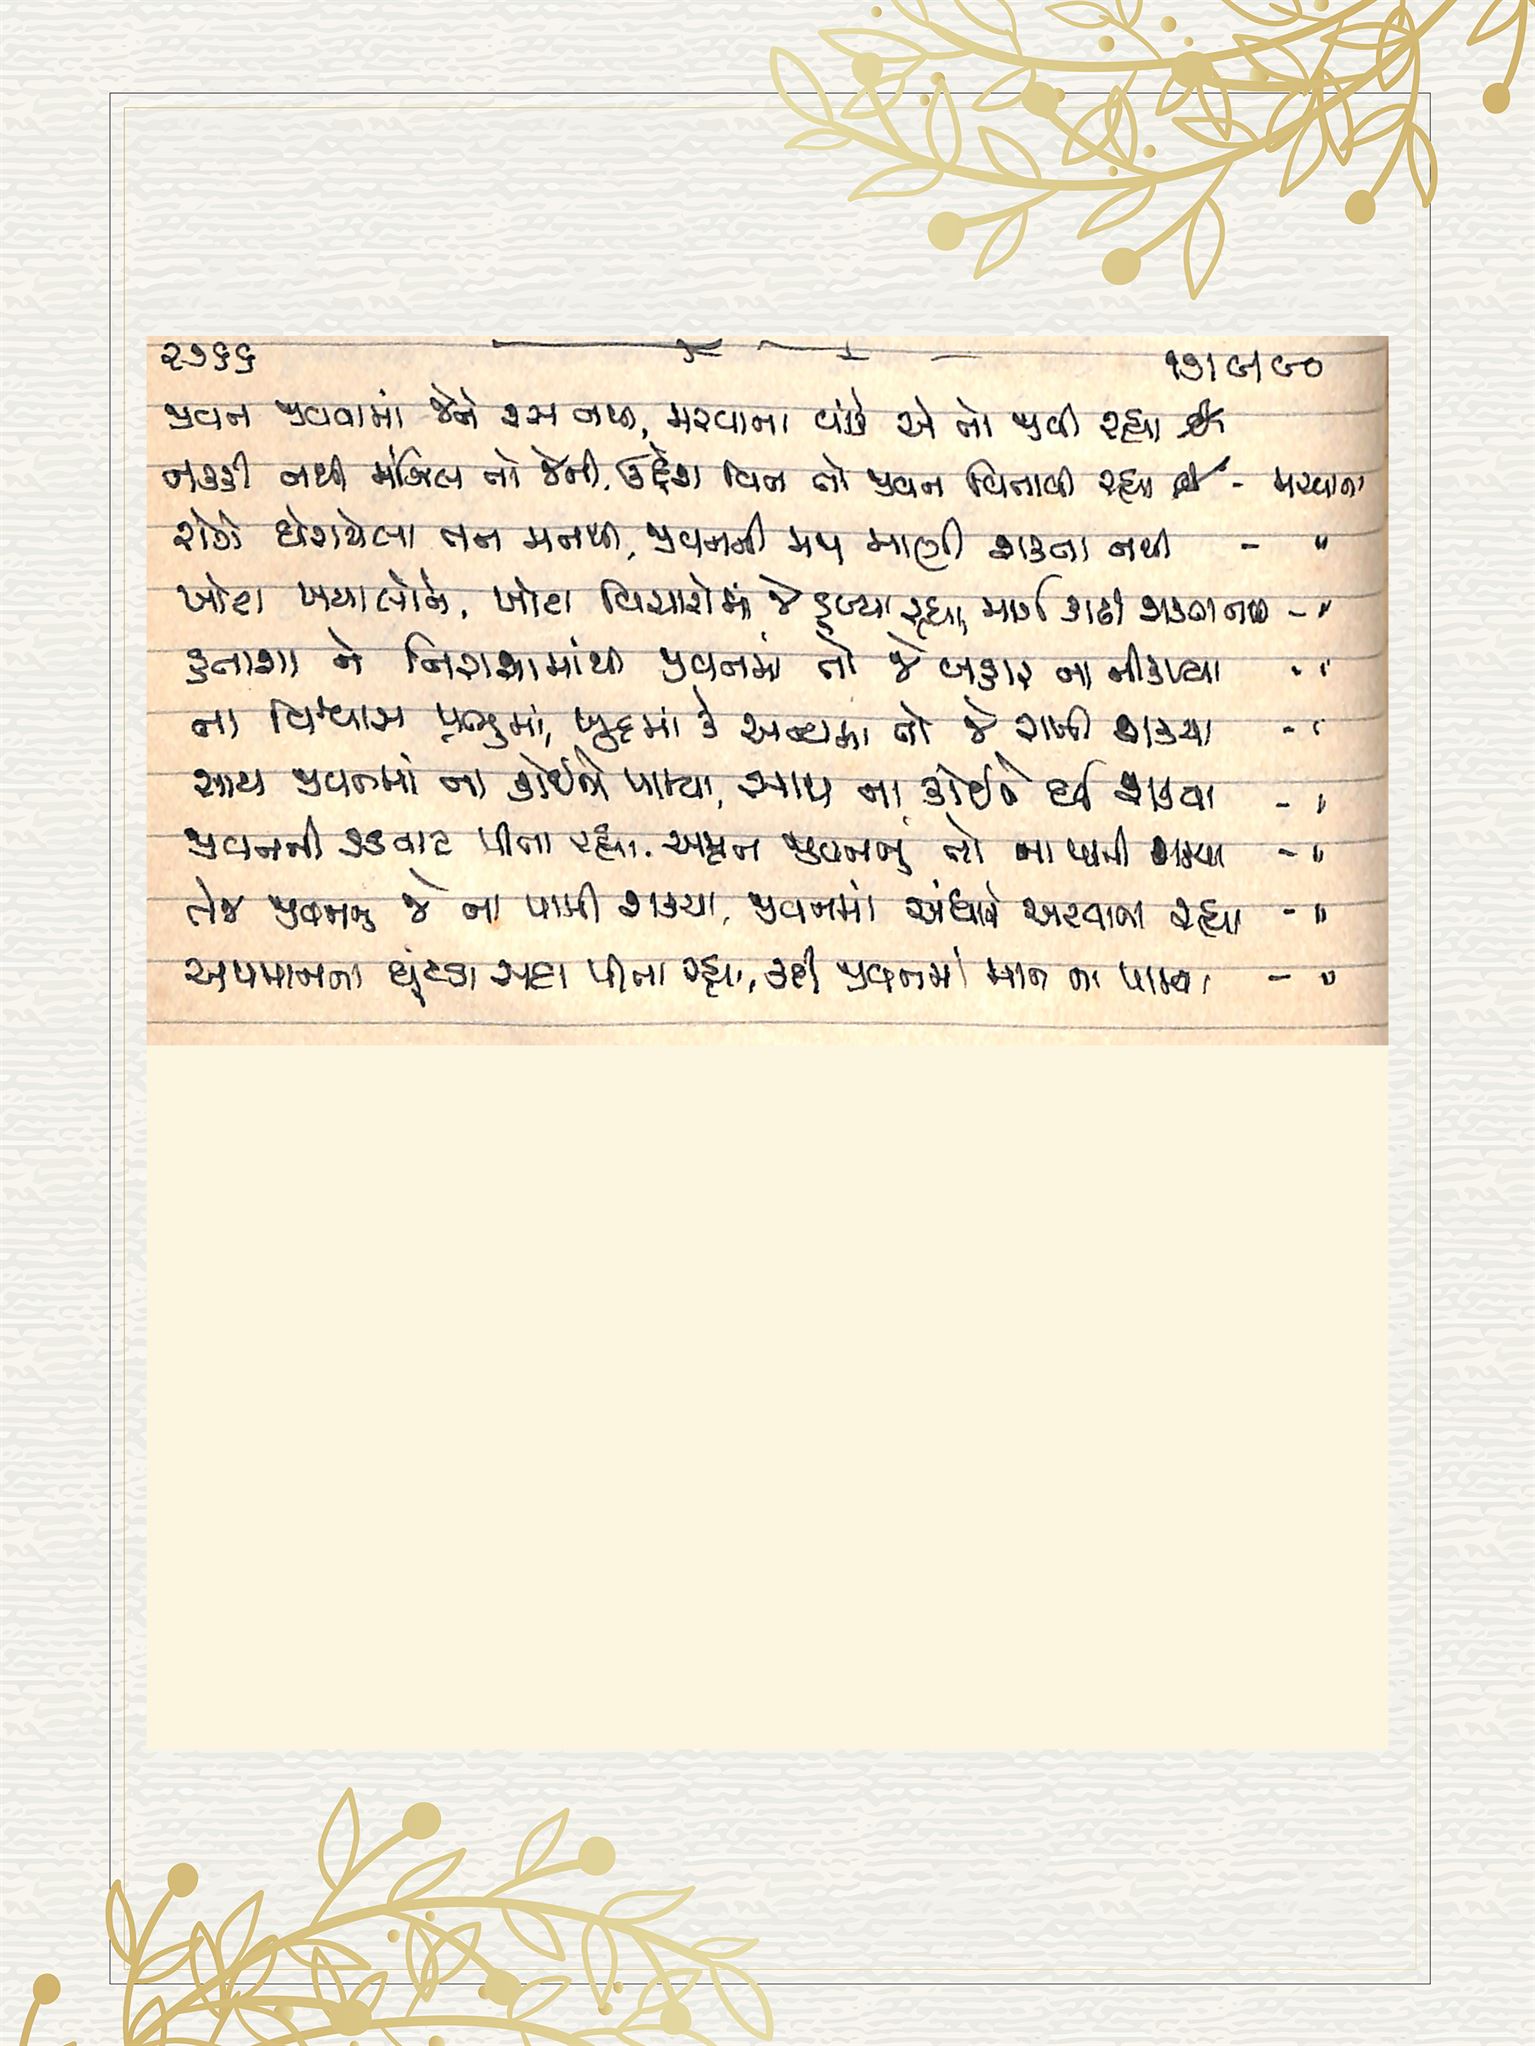 ૨૭૬૬ ૧૭/૯/૯૦
જીવન જીવવામાં જેને રસ નથી, મરવાના વાંકે એ તો જીવી રહ્યા
નક્કી નથી મંઝિલ તો જેની, ઉદ્દેશ વિન તો જીવન વિતાવી રહ્યા - મરવાના
રોગે ઘેરાયેલા તન મનથી, જીવનની મઝા માણી શક્તા નથી - "
ખોટા ખયાલોને, ખોટા વિચારોમાં જે ડૂબ્યા રહ્યા, માર્ગ કાઢી શક્તા નથી - "
હતાશા ને નિરાશામાંથી જીવનમાં તો જે બહાર ના નીકળ્યા - "
ના વિશ્વાસ પ્રભુમાં, ખુદમાં કે અન્યમાં તો જે રાખી શક્યા - "
સાથ જીવનમાં ના કોઈનો પામ્યા, સાથ ના કોઈને દઈ શક્યા - "
જીવનની કડવાટ પીતા રહ્યા, અમૃત જીવનનું તો ના પામી શક્યા - "
તેજ જીવનનું જે ના પામી શક્યા, જીવનમાં અંધારે અટવાતા રહ્યા - "
અપમાનના ઘૂંટડા સદા પીતા રહ્યા, કદી જીવનમાં માન ના પામ્યા - "